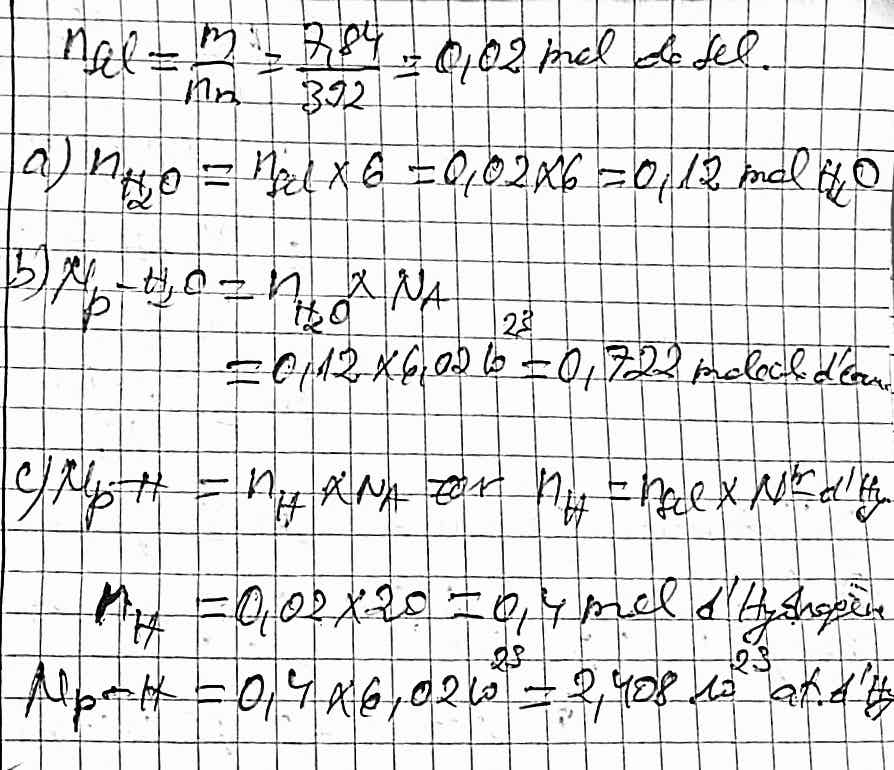 n_sel = m/m_m = 7,84/392 = 0,02 mol de sel.
a) n_H2O = n_sel × 6 = 0,02×6 = 0,12 mol H2O
b) Np-H2O = n_H2O × NA
= 0,12 × 6,02 10^23 = 0,722 molécul d'eau
c) Np-H = n_H × NA or n_H = n_sel × Nbr d'Hy
n_H = 0,02×20 = 0,4 mol d'Hydrogèn
Np-H = 0,4 × 6,02 10^23 = 2,408 .10^23 at. d'Hy